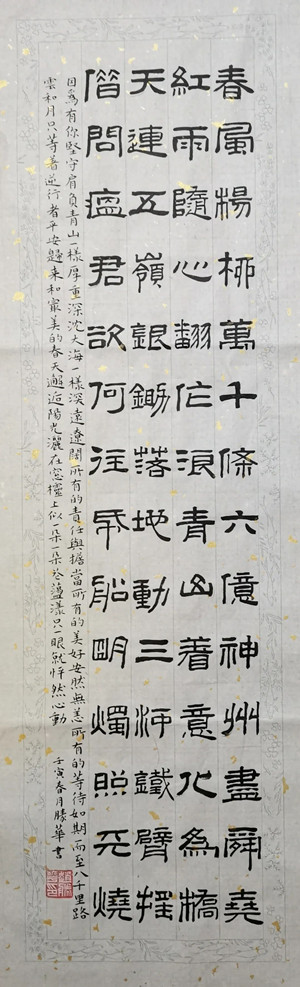 春風楊柳萬千條六億神州盡舜堯
紅雨隨心翻作浪青山著意化為橋
天連五嶺銀鋤落地動三河鐵臂搖
借問瘟君欲何往紙船明燭照天燒
因為有你堅守肩負青山一樣厚重深沈大海一樣深遠遼闊所有的責任與擔當所有的美好安然無恙所有的等待如期而至八千里路
雲和月只等著逆行者平安歸來和最美的春天邂逅陽光灑在窓檯上似一朵一朵蕩漾只一眼就怦然心動
壬寅春月勝華書